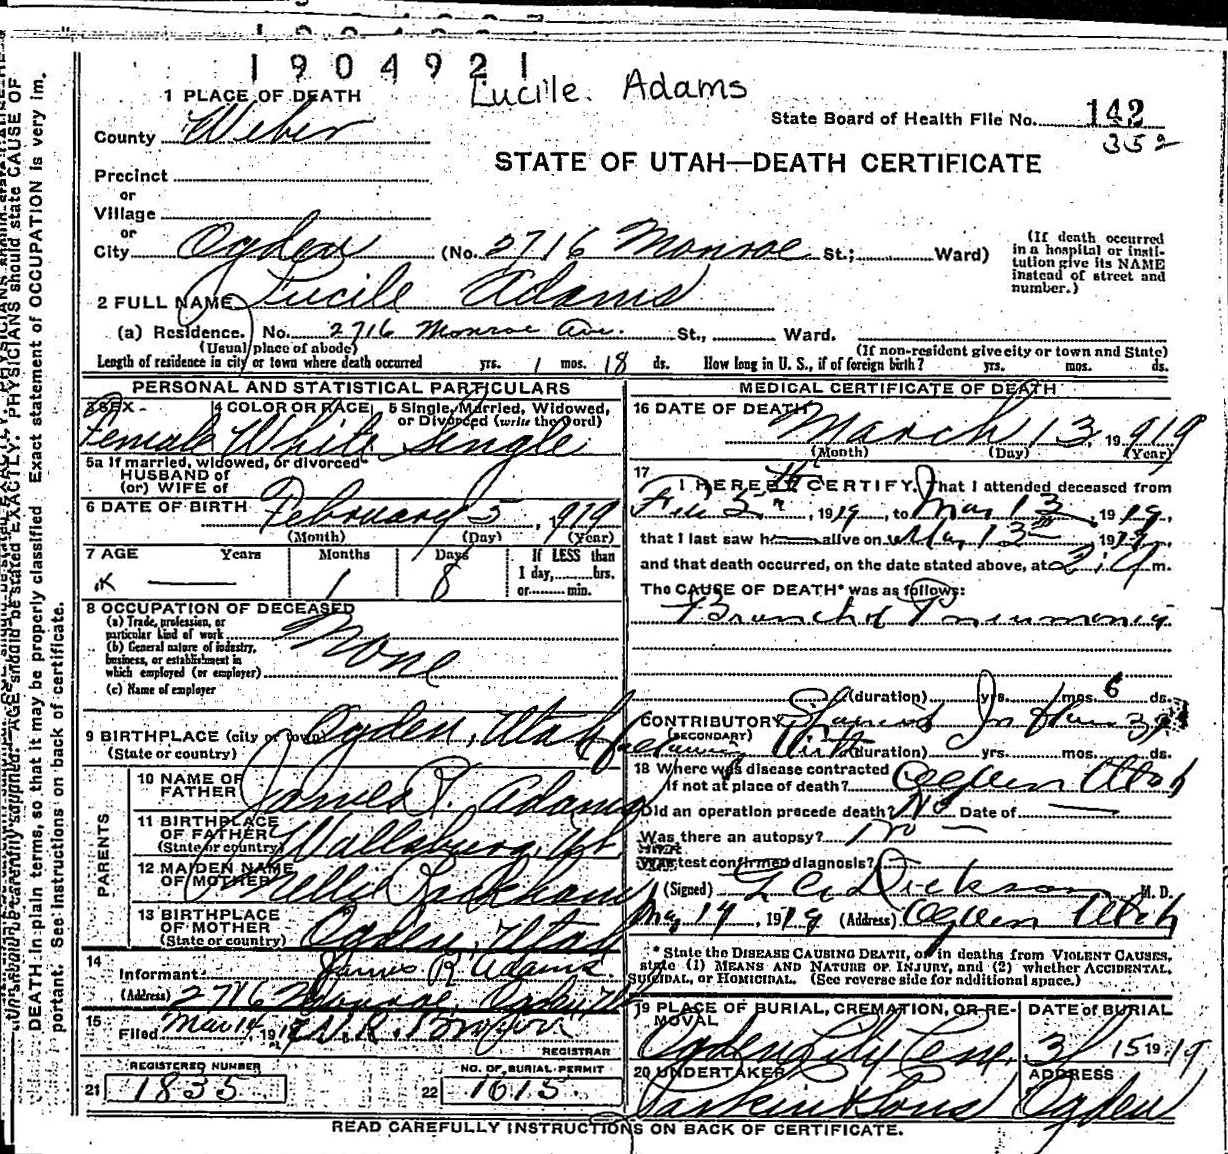 1904921
Lucille Adams
1 PLACE OF DEATH
State Board of Health File No. 142
35 2
County Weber
STATE OF UTAH—DEATH CERTIFICATE
Precinct
or
Village
or
City Ogden (No. 2716 Monroe St.; Ward)
(If death occurred in a hospital or institution give its NAME instead of street and number.)
2 FULL NAME Lucile Adams
(a) Residence. No. 2716 Monroe Ave. St., Ward.
(Usual place of abode) (If non-resident give city or town and State)
Length of residence in city or town where death occurred yrs. 1 mos. 18 ds. How long in U. S., if of foreign birth? yrs. mos. ds.
PERSONAL AND STATISTICAL PARTICULARS
3 SEX 4 COLOR OR RACE 5 Single, Married, Widowed, or Divorced (write the word)
Female White Single
5a If married, widowed, or divorced
HUSBAND of
(or) WIFE of
6 DATE OF BIRTH February 5, 1919
(Month) (Day) (Year)
7 AGE Years Months Days If LESS than
1 8 1 day, hrs.
or min.
8 OCCUPATION OF DECEASED
(a) Trade, profession, or particular kind of work None
(b) General nature of industry, business, or establishment in which employed (or employer)
(c) Name of employer
9 BIRTHPLACE (city or town) Ogden, Utah
(State or country)
PARENTS
10 NAME OF FATHER James R. Adams
11 BIRTHPLACE OF FATHER Wallsburg, Ut
(State or country)
12 MAIDEN NAME OF MOTHER Nellie
13 BIRTHPLACE OF MOTHER Ogden, Utah
(State or country)
14
Informant James R. Adams
(Address) 2716 Monroe, Ogden
15
Filed Mar 14, 1919
REGISTRAR
REGISTERED NUMBER
21 1835
NO. OF BURIAL PERMIT
22 1615
MEDICAL CERTIFICATE OF DEATH
16 DATE OF DEATH
March 13 1919
(Month) (Day) (Year)
17 I HEREBY CERTIFY, That I attended deceased from
, 1919, to Mar 13, 1919,
that I last saw h alive on Mar 13, 1919,
and that death occurred, on the date stated above, at m.
The CAUSE OF DEATH* was as follows:
Pneumonia
(duration) yrs. mos. 6 ds.
CONTRIBUTORY
(SECONDARY)
Birth (duration) yrs. mos. ds.
18 Where was disease contracted
if not at place of death? Ogden Utah
Did an operation precede death? No Date of
Was there an autopsy? no
What test confirmed diagnosis?
(Signed) Dickson M. D.
Mar 14, 1919 (Address) Ogden Utah
*State the DISEASE CAUSING DEATH, or in deaths from VIOLENT CAUSES, state (1) MEANS AND NATURE OF INJURY, and (2) whether ACCIDENTAL, SUICIDAL, or HOMICIDAL. (See reverse side for additional space.)
19 PLACE OF BURIAL, CREMATION, OR REMOVAL DATE of BURIAL
Ogden City Cem. 3/15 1919
20 UNDERTAKER ADDRESS
Sons Ogden
READ CAREFULLY INSTRUCTIONS ON BACK OF CERTIFICATE.
should be carefully supplied. AGE should be stated EXACTLY. PHYSICIANS should state CAUSE OF
DEATH in plain terms, so that it may be properly classified. Exact statement of OCCUPATION is very im-
portant. See instructions on back of certificate.